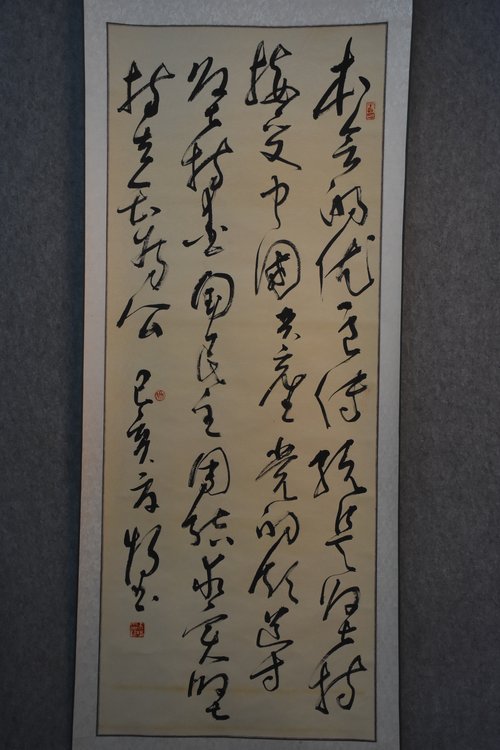 本会的优良传统是坚持
接受中国共产党的领导
坚持爱国民主团结求实坚
持立会为公 己亥夏 书